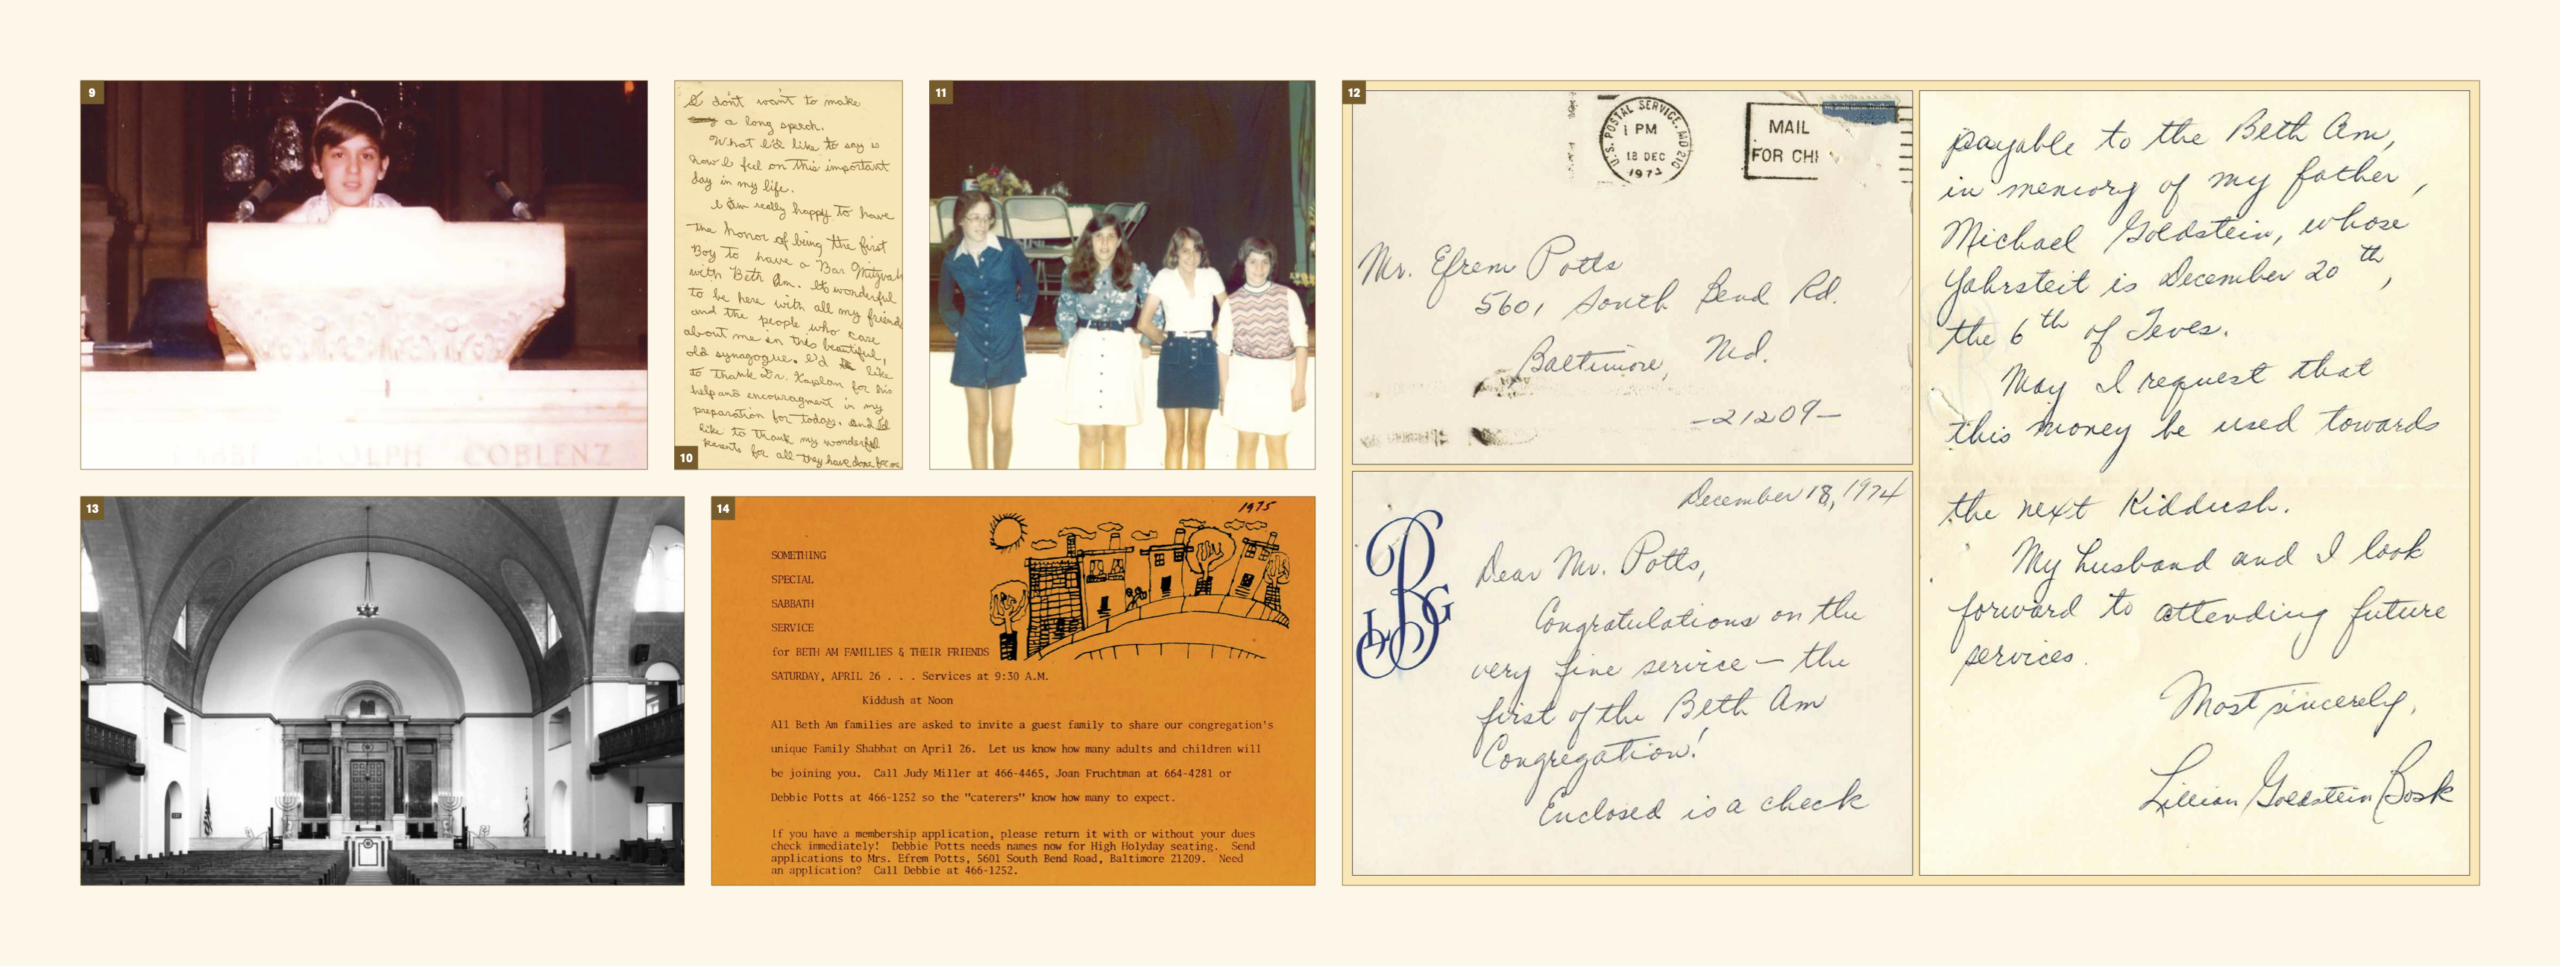 9
RABBI ADOLPH COBLENZ
10
I don't want to make
a long speech.
What I'd like to say is
how I feel on this important
day in my life.
I am really happy to have
the honor of being the first
Boy to have a Bar Mitzvah
with Beth Am. It wonderful
to be here with all my friends
and the people who care
about me in this beautiful,
old synagogue. I'd like
to thank Dr. Kaplan for his
help and encouragment in my
preparation for today. and I'd
like to thank my wonderful
parents for all they have done for me
11
12
U.S. POSTAL SERVICE, MD 210
1 PM
18 DEC
MAIL
FOR CHI
Mr. Efrem Potts
5601 South Bend Rd.
Baltimore, Md.
-21209-
December 18, 1974
LBG
Dear Mr. Potts,
Congratulations on the
very fine service - the
first of the Beth Am
Congregation!
Enclosed is a check
payable to the Beth Am,
in memory of my father,
Michael Goldstein, whose
Yahrsteit is December 20th,
the 6th of Teves.
May I request that
this money be used towards
the next Kiddush.
My husband and I look
forward to attending future
services.
Most sincerely,
Lillian Goldstein Bosk
13
14
1975
SOMETHING
SPECIAL
SABBATH
SERVICE
for BETH AM FAMILIES & THEIR FRIENDS
SATURDAY, APRIL 26 . . . Services at 9:30 A.M.
Kiddush at Noon
All Beth Am families are asked to invite a guest family to share our congregation's
unique Family Shabbat on April 26. Let us know how many adults and children will
be joining you. Call Judy Miller at 466-4465, Joan Fruchtman at 664-4281 or
Debbie Potts at 466-1252 so the "caterers" know how many to expect.
If you have a membership application, please return it with or without your dues
check immediately! Debbie Potts needs names now for High Holyday seating. Send
applications to Mrs. Efrem Potts, 5601 South Bend Road, Baltimore 21209. Need
an application? Call Debbie at 466-1252.